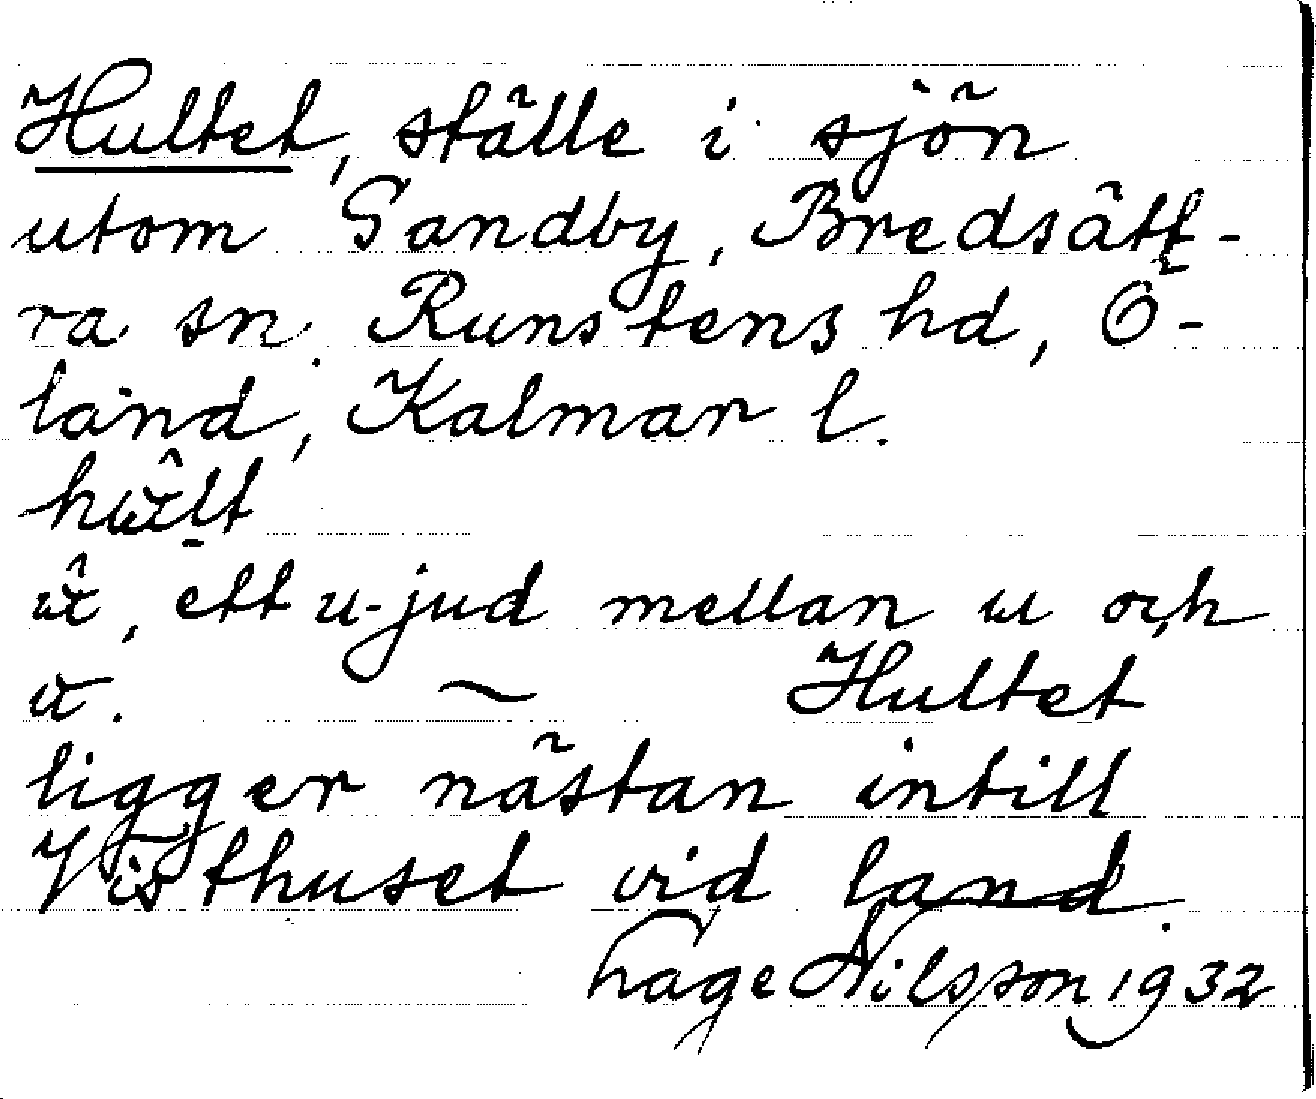 Hultet, ställe i sjön
utom Sandby, Bredsätt-
ra sn. Runstens hd, Ö-
land, Kalmar l.
ett u-jud mellan u och
Hultet
ligger nästan intill
Visthuset vid land.
Lage Nilsson 1932